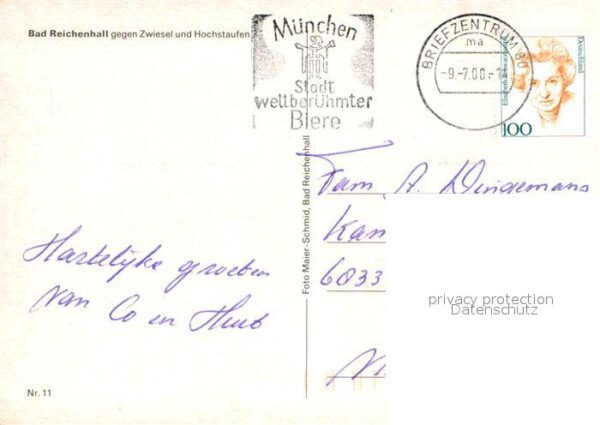 Bad Reichenhall gegen Zwiesel und Hochstaufen
München
Stadt
weltberühmter
Biere
BRIEFZENTRUM 80
ma
-9.-7.00-
Deutschland
Elisabeth Schwarzhaupt
100
Foto Maier-Schmid, Bad Reichenhall
Fam. A. Dingemans
Kan
6033
privacy protection
Datenschutz
Hartelijke groeten
van Co en Huub
Nr. 11